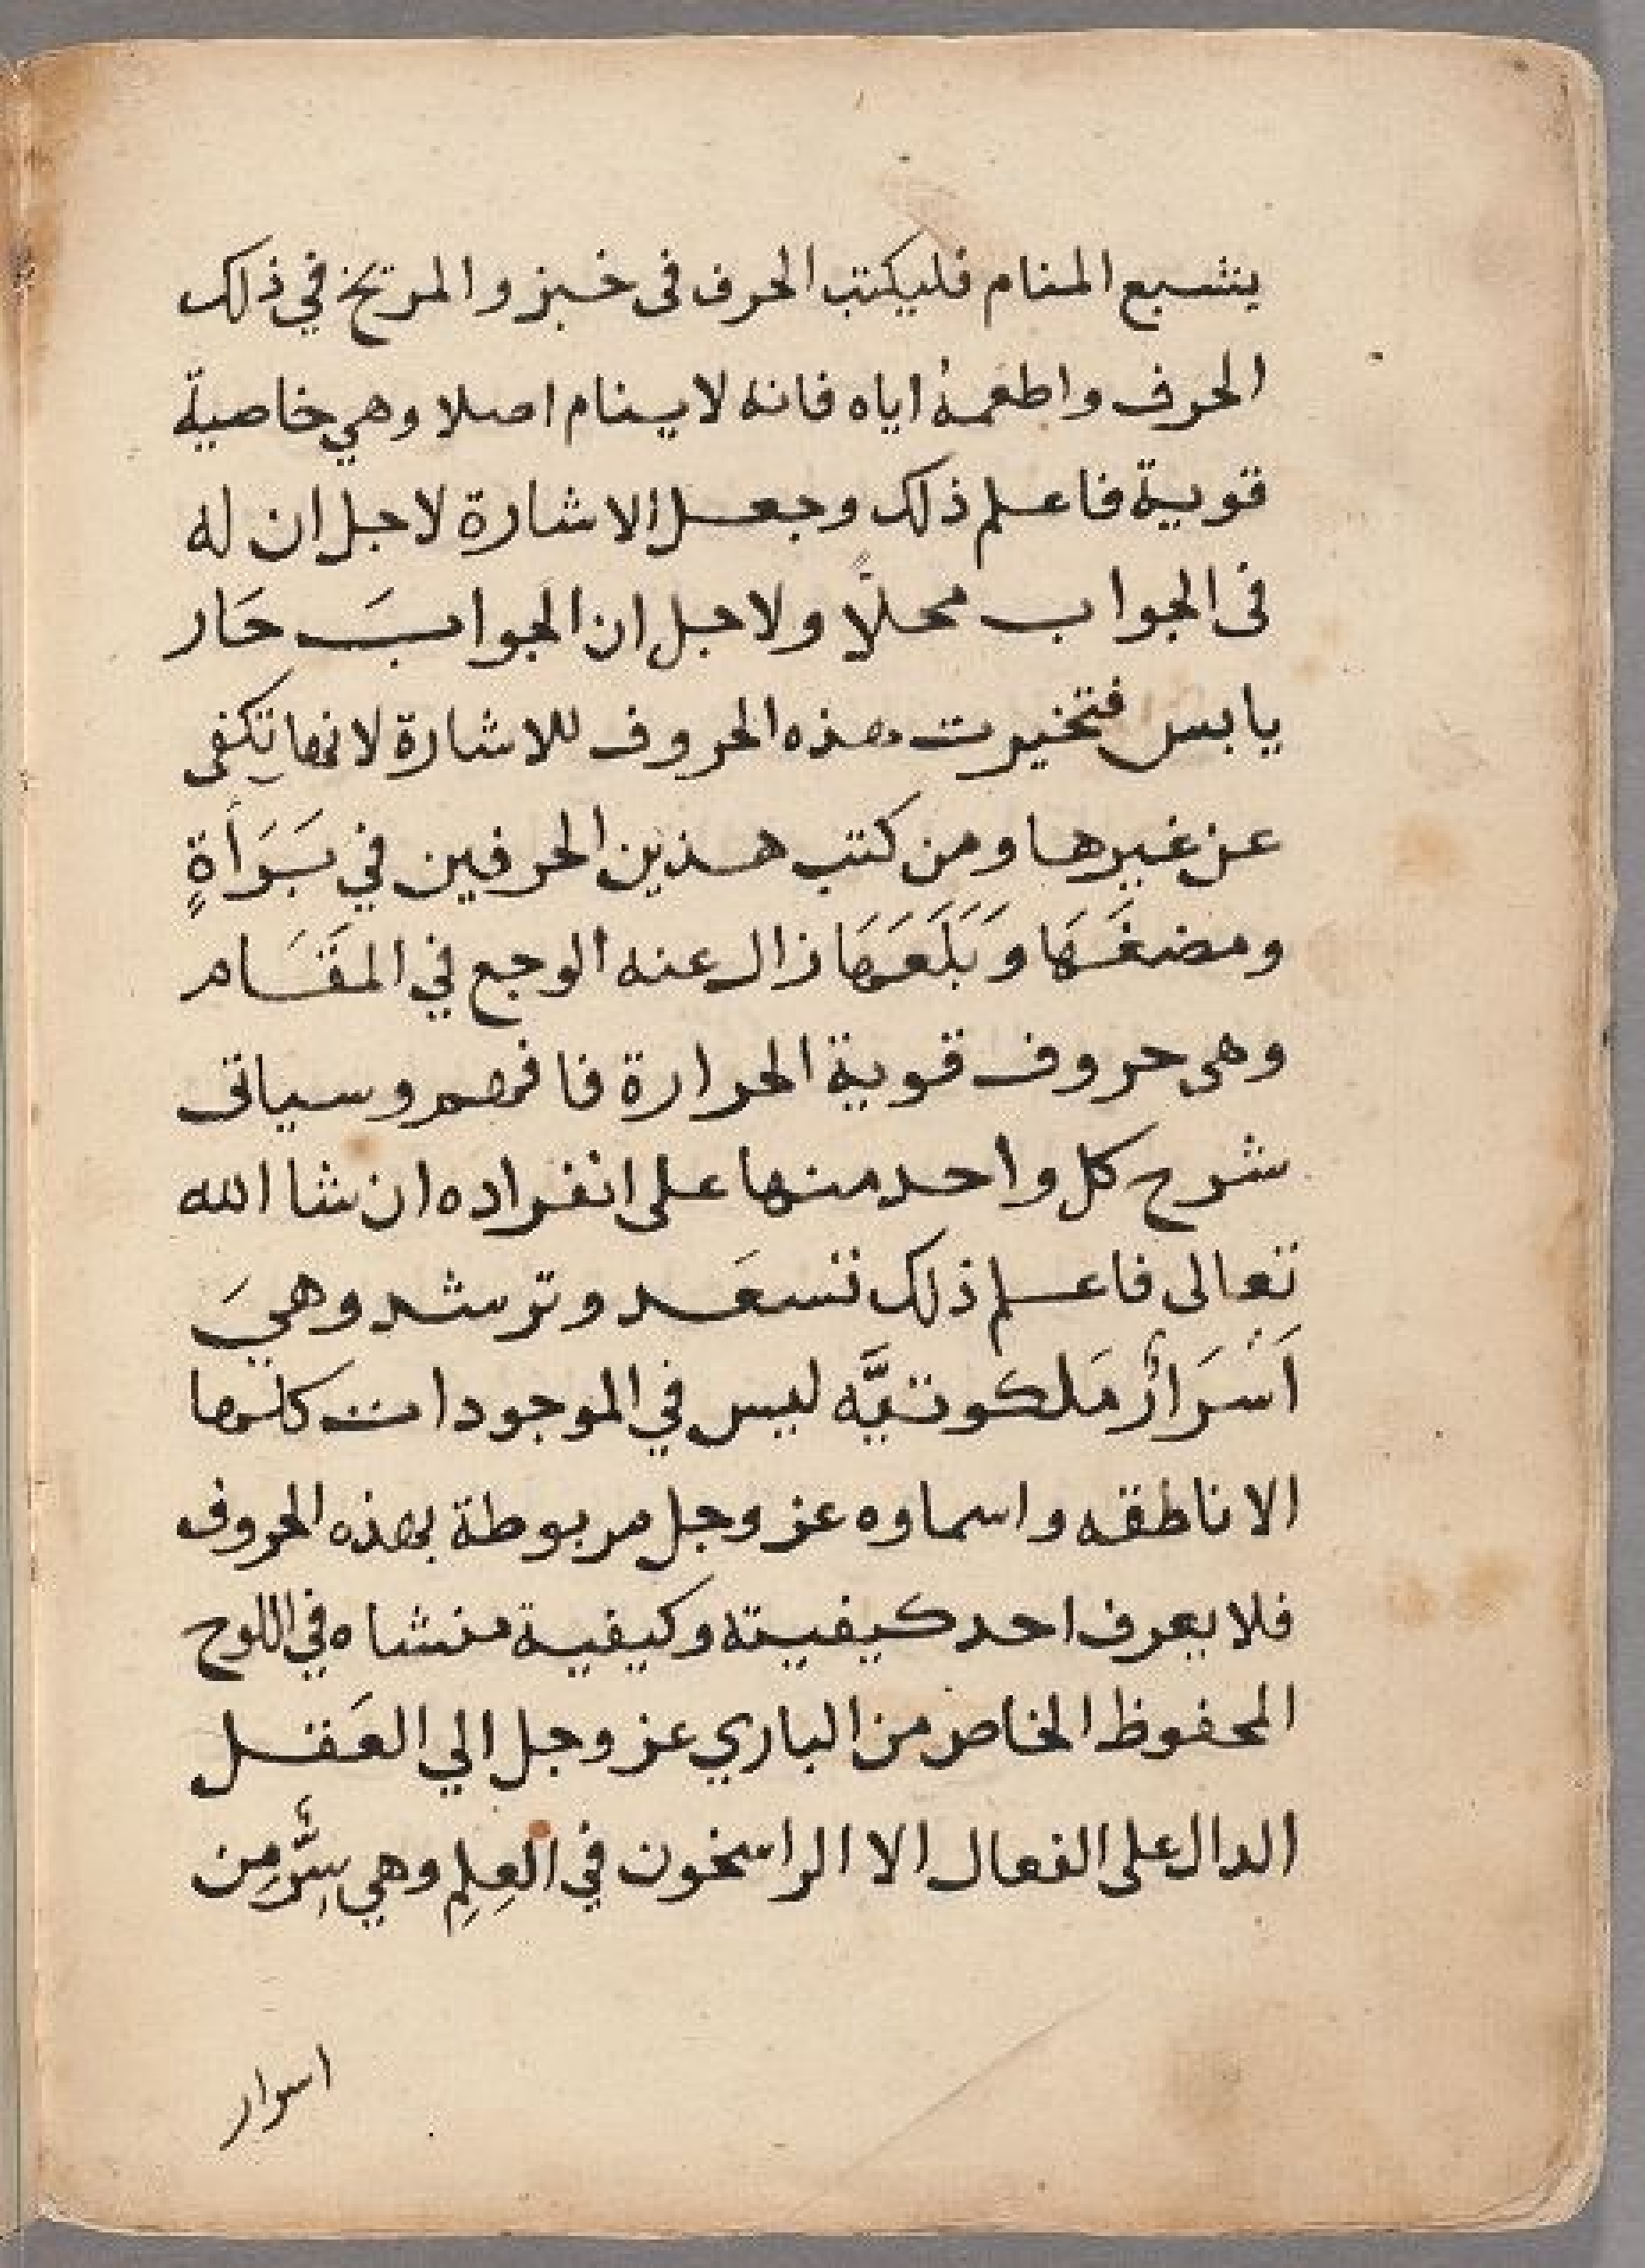 يتشبع المنام فليكتب الحرف فى خبز والمريخ في ذلك
الحرف واطعمهُ اياه فانه لا ينام اصلا وهي خاصية
قوية فاعلم ذلك وجعل الاشارة لاجل ان له
فى الجواب محلاً ولاجل ان الجوابَ حَار
يابس فتخيرت هذه الحروف للاشارة لانها تكفى
عن غيرها ومن كتب هذين الحرفين في بَرَأَةٍ
ومضغَهَا وَبَلَعَهَا زال عنه الوجع في المقَام
وهى حروف قوية الحرارة فافهم وسياتى
شرح كل واحد منها على انفراده ان شا الله
تعالى فاعلم ذلك تسعَد وترشد وهيَ
اَسْرَارٌ مَلكوتيَّه ليس في الموجودات كلها
الا ناطقه واسماوه عز وجل مربوطة بهذه الحروف
فلا يعرف احد كيفيته وكيفية منشاه في اللوح
المحفوظ الخاص من الباري عز وجل الي العَقل
الدال على الفعال الا الراسخون في العِلمِ وهي سِرٌّ مِن
اسرار